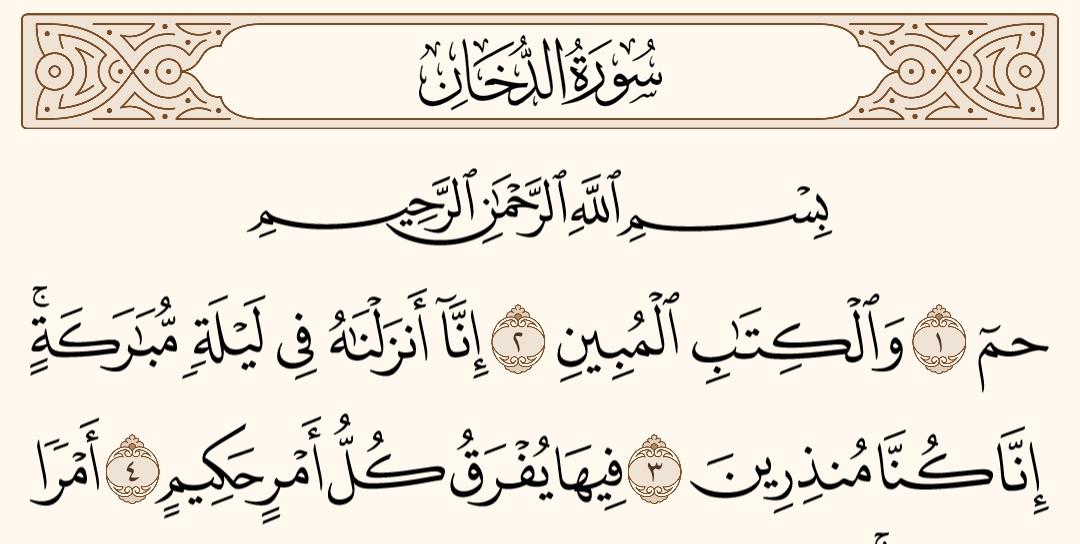 سُورَةُ الدُّخَانِ
بِسْمِ ٱللَّهِ ٱلرَّحْمَٰنِ ٱلرَّحِيمِ
حمٓ ١ وَٱلْكِتَٰبِ ٱلْمُبِينِ ٢ إِنَّآ أَنزَلْنَٰهُ فِى لَيْلَةٍ مُّبَٰرَكَةٍ ۚ
إِنَّا كُنَّا مُنذِرِينَ ٣ فِيهَا يُفْرَقُ كُلُّ أَمْرٍ حَكِيمٍ ٤ أَمْرًا